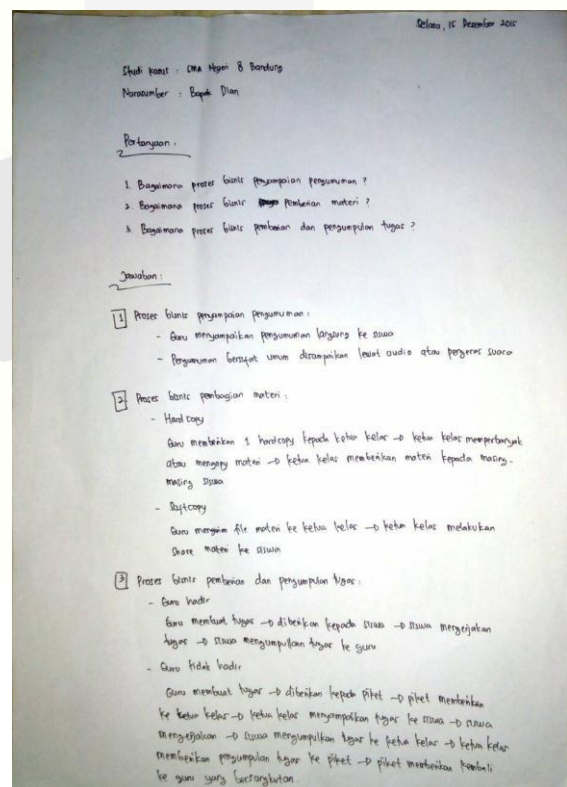 Selasa, 15 Desember 2015
Studi kasus : SMA Negeri 8 Bandung
Narasumber : Bapak Dian
Pertanyaan :
1. Bagaimana proses bisnis penyampaian pengumuman ?
2. Bagaimana proses bisnis pemberian materi ?
3. Bagaimana proses bisnis pemberian dan pengumpulan tugas ?
Jawaban :
1 Proses bisnis penyampaian pengumuman :
- Guru menyampaikan pengumuman langsung ke siswa
- Pengumuman bersifat umum disampaikan lewat audio atau pengeras suara
2 Proses bisnis pembagian materi :
- Hard copy
Guru memberikan 1 hardcopy kepada ketua kelas → ketua kelas memperbanyak
atau mengcopy materi → ketua kelas memberikan materi kepada masing-
masing siswa
- Softcopy
Guru mengirim file materi ke ketua kelas → ketua kelas melakukan
share materi ke siswa
3 Proses bisnis pemberian dan pengumpulan tugas :
- Guru hadir
Guru membuat tugas → diberikan kepada siswa → siswa mengerjakan
tugas → siswa mengumpulkan tugas ke guru
- Guru tidak hadir
Guru membuat tugas → diberikan kepada piket → piket memberikan
ke ketua kelas → ketua kelas menyampaikan tugas ke siswa → siswa
mengerjakan → siswa mengumpulkan tugas ke ketua kelas → ketua kelas
memberikan pengumpulan tugas ke piket → piket memberikan kembali
ke guru yang bersangkutan.